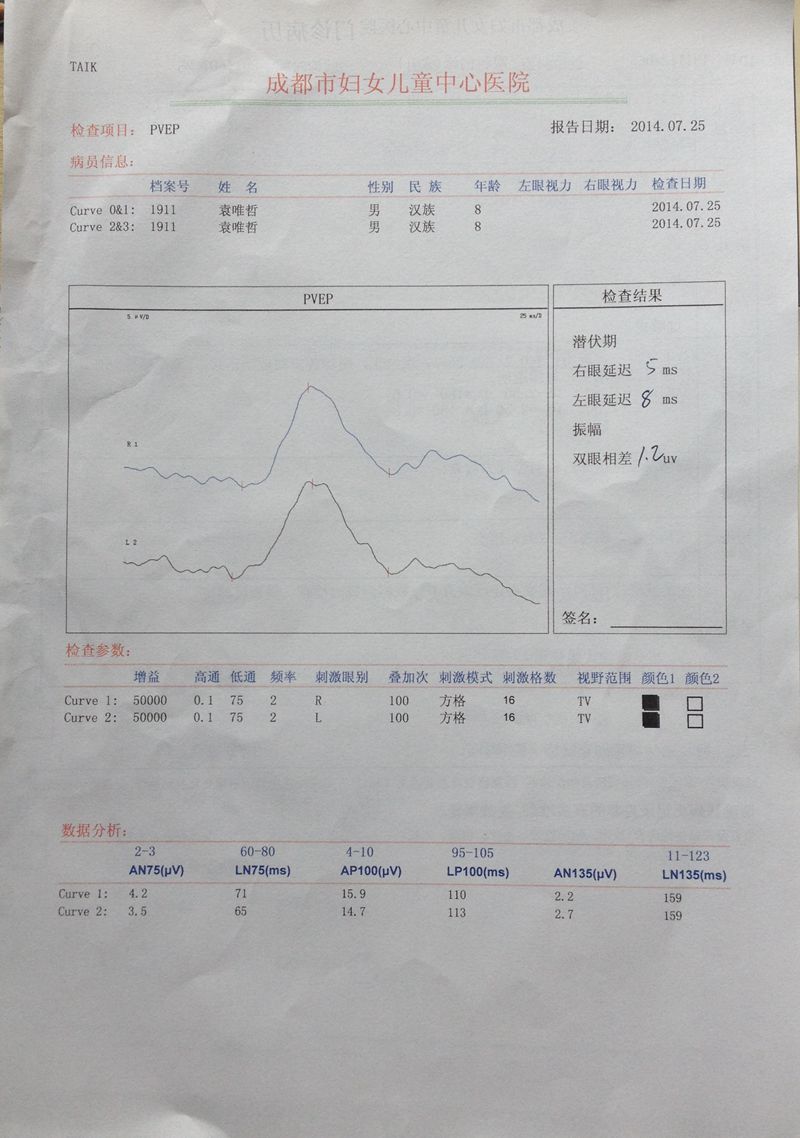 TAIK
成都市妇女儿童中心医院
检查项目: PVEP 报告日期: 2014.07.25
病员信息:
档案号 姓 名 性别 民 族 年龄 左眼视力 右眼视力 检查日期
Curve 0&1: 1911 袁唯哲 男 汉族 8 2014.07.25
Curve 2&3: 1911 袁唯哲 男 汉族 8 2014.07.25
PVEP
5 μV/D 25 ms/D
R 1
L 2
检查结果
潜伏期
右眼延迟 5 ms
左眼延迟 8 ms
振幅
双眼相差 1.2 uv
签名:
检查参数:
增益 高通 低通 频率 刺激眼别 叠加次 刺激模式 刺激格数 视野范围 颜色1 颜色2
Curve 1: 50000 0.1 75 2 R 100 方格 16 TV
Curve 2: 50000 0.1 75 2 L 100 方格 16 TV
数据分析:
2-3 60-80 4-10 95-105 11-123
AN75(μV) LN75(ms) AP100(μV) LP100(ms) AN135(μV) LN135(ms)
Curve 1: 4.2 71 15.9 110 2.2 159
Curve 2: 3.5 65 14.7 113 2.7 159